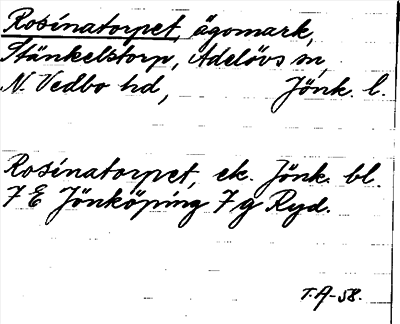 Rosinatorpet, ägomark,
Stänkelstorp, Adelövs sn,
N. Vedbo hd, Jönk. l.
Rosinatorpet, ek. Jönk. bl.
7 E Jönköping 7 g Ryd.
T.A-58.